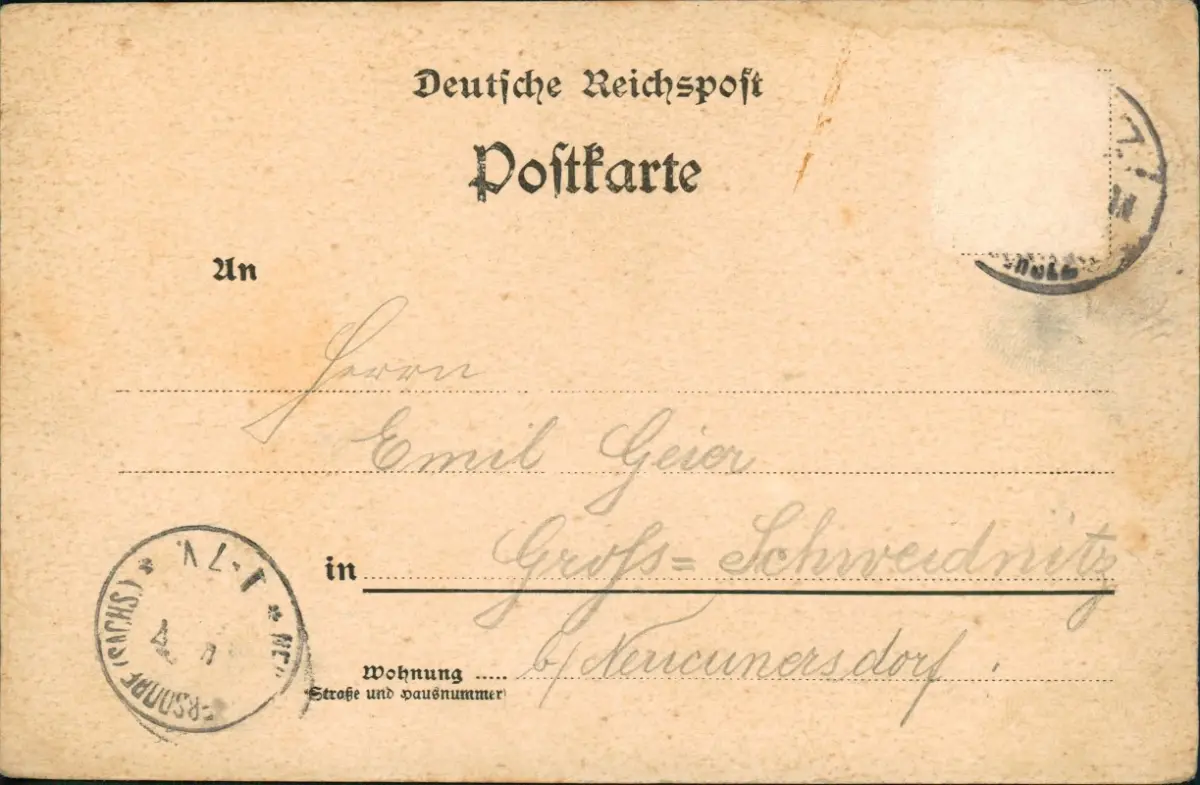 Deutsche Reichspost
Postkarte
An
Herrn
Emil Geier
in Gross=Schweidnitz
Wohnung b/ Neucunersdorf.
(Straße und Hausnummer)
ERSDORF (SACHS)